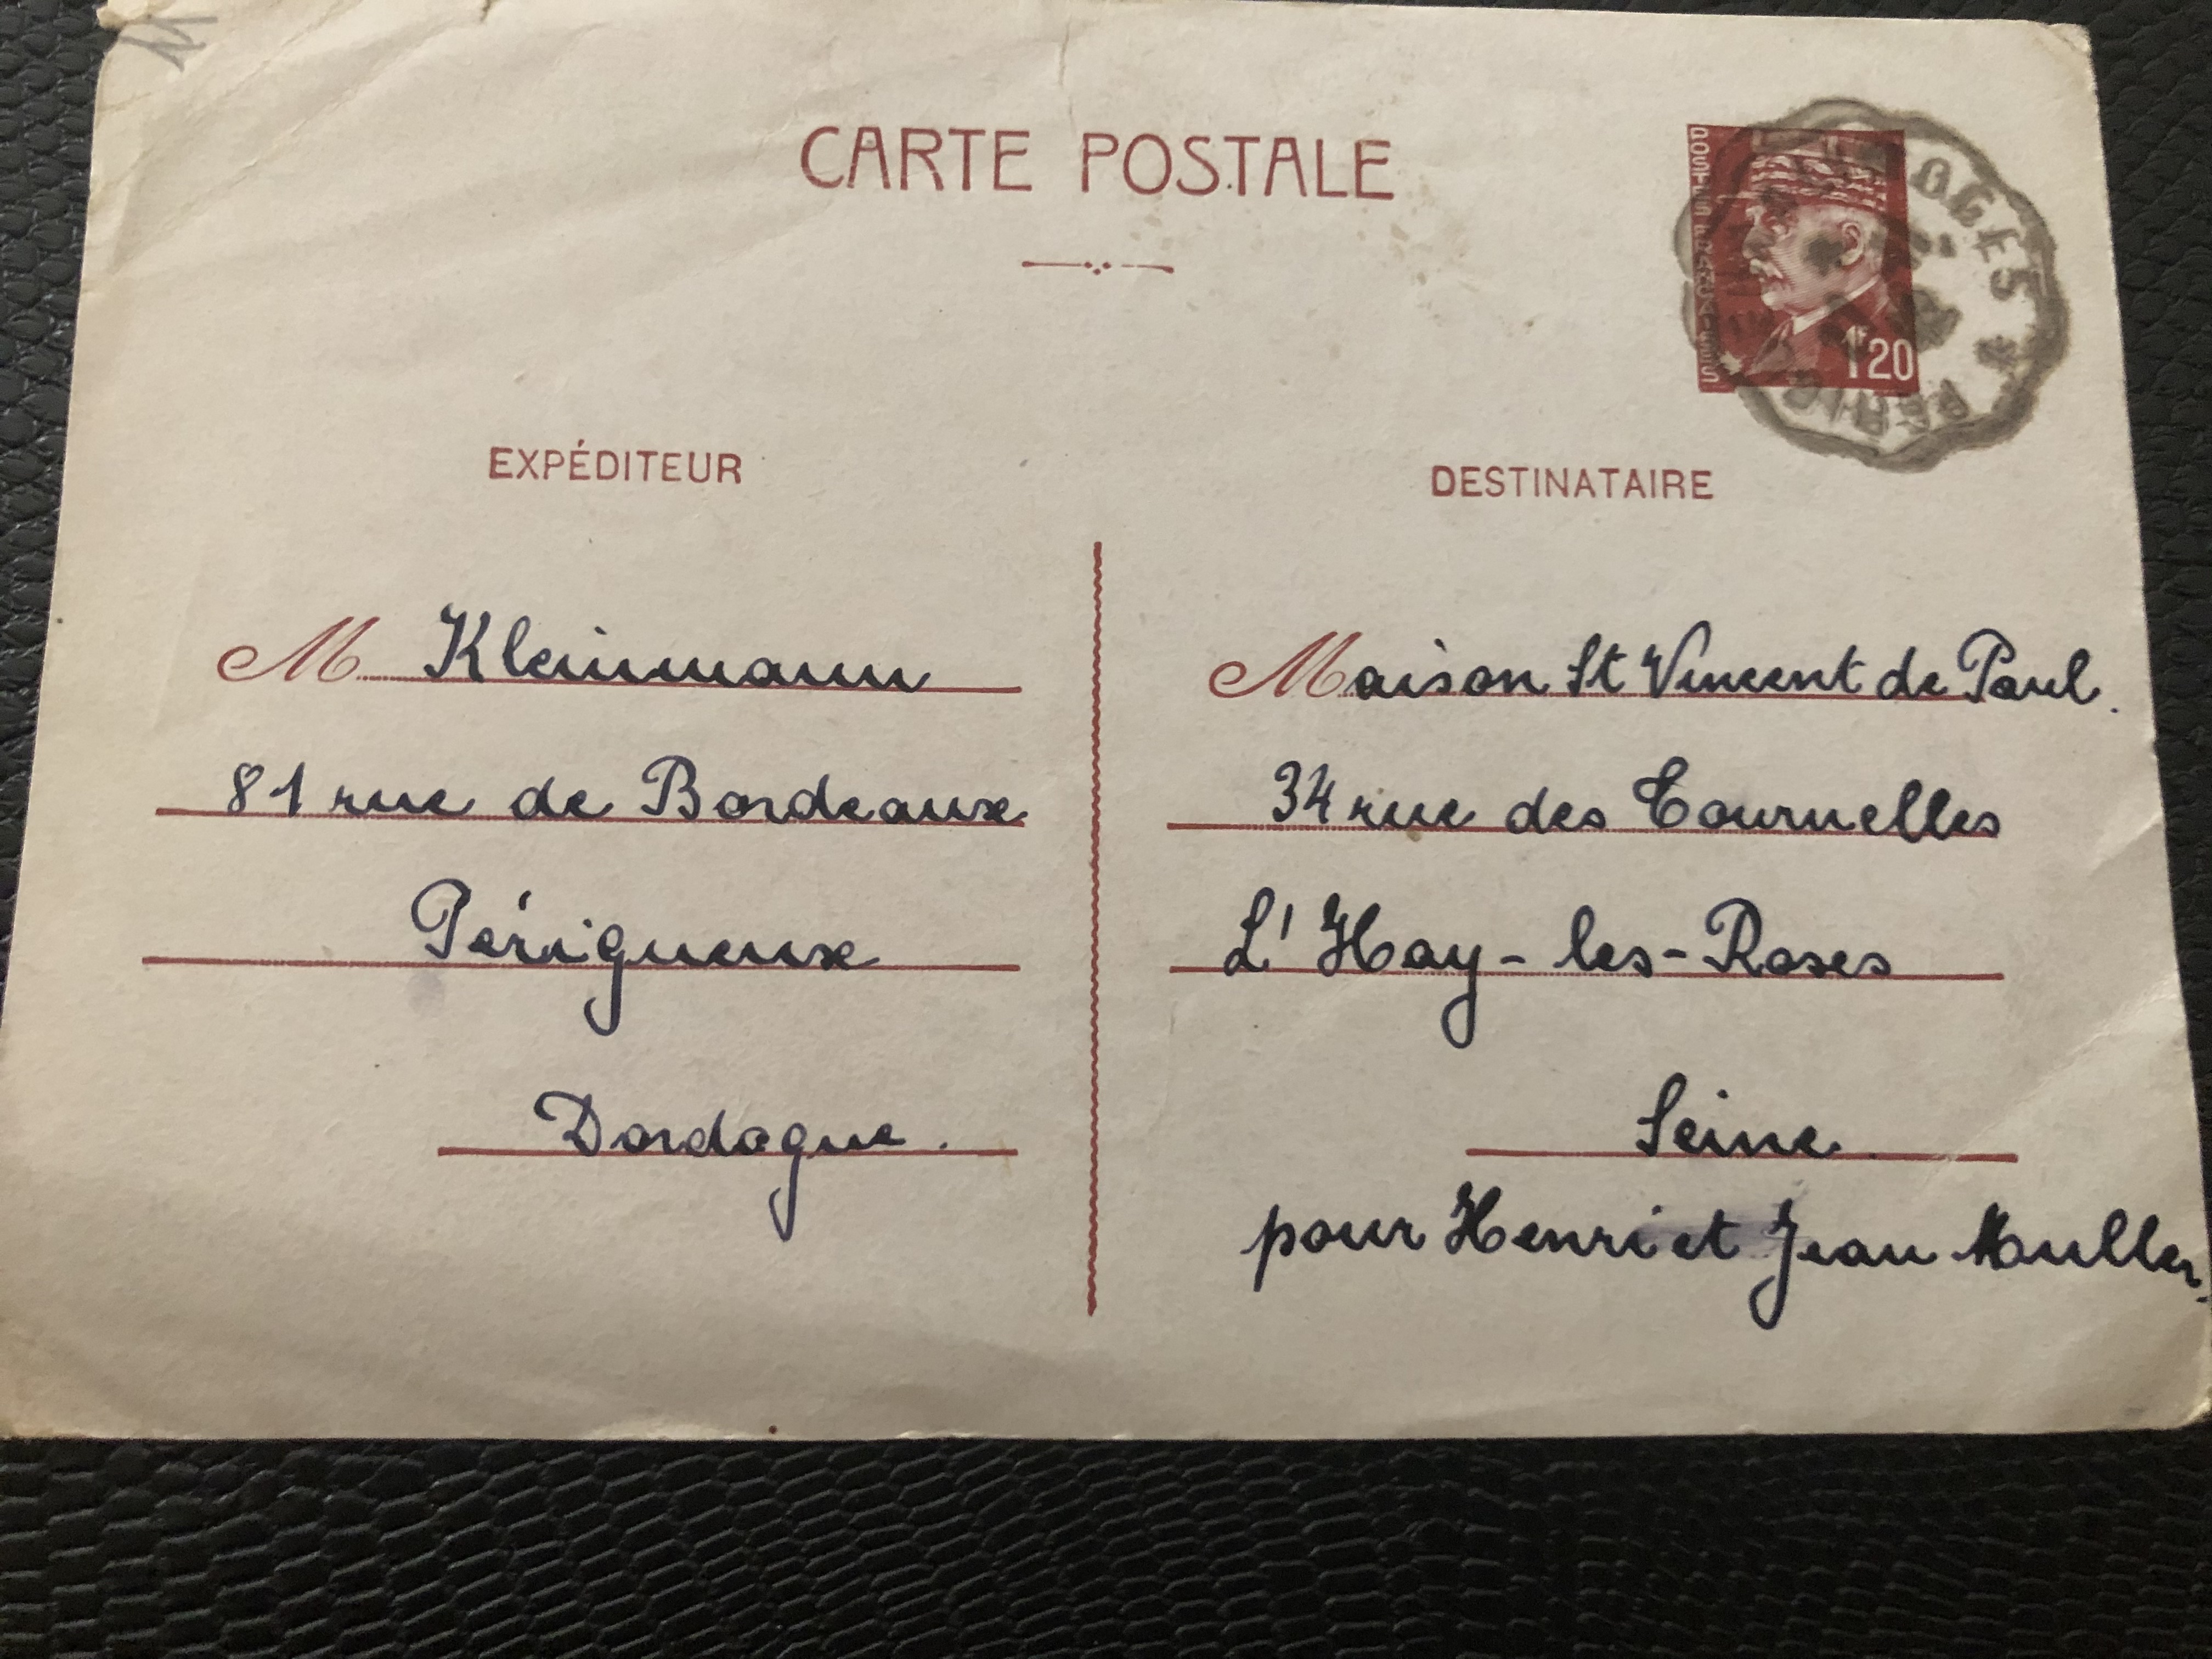 CARTE POSTALE
POSTES FRANÇAISES
1F20
LIMOGES
PERIG
EXPÉDITEUR
M Kleinmann
81 rue de Bordeaux
Périgueux
Dordogne.
DESTINATAIRE
Maison St Vincent de Paul.
34 rue des Tournelles
L'Hay-les-Roses
Seine.
pour Henri et Jean Muller.